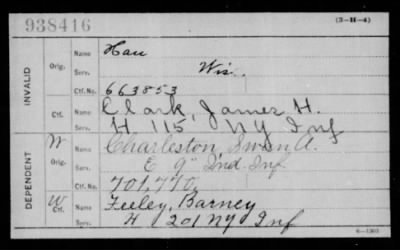 938416
(3-H-4)
INVALID
Orig.
Name Hau
Serv. Wis.
Ctf. No. 663853
Ctf.
Name Clark, James H.
Serv. H. 115 NY Inf
DEPENDENT
W
Orig.
Name Charleston Swen A.
Serv. E 9" Ind Inf.
Ctf. No. 701,770,
W
Ctf.
Name Feeley, Barney
Serv. H 201 NY Inf
6-1303